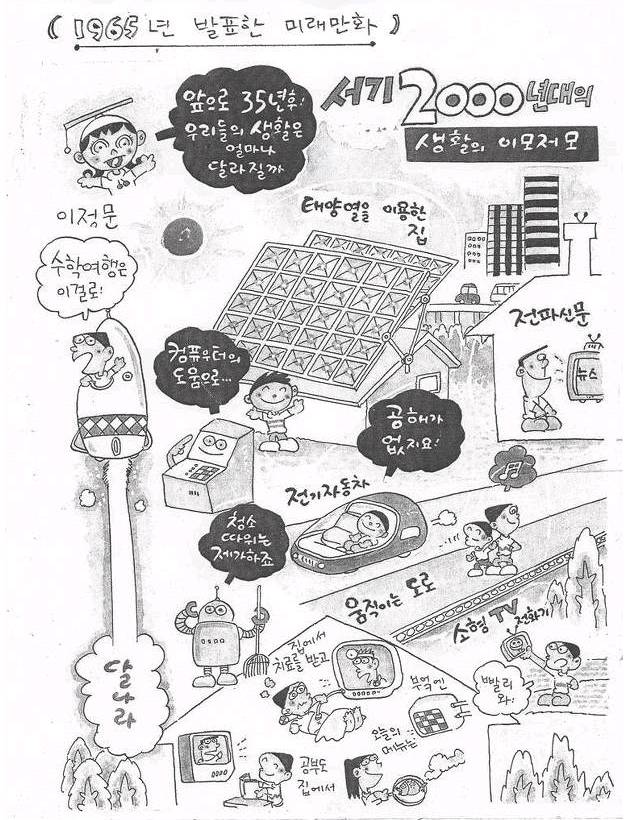 ( 1965년 발표한 미래만화 )
앞으로 35년후!
우리들의 생활은
얼마나
달라질까
서기 2000년대의
생활의 이모저모
이정문
태양열을 이용한
집
수학여행은
이걸로!
전파신문
뉴스
컴퓨우터의
도움으로...
공해가
없지요!
전기자동차
청소
따위는
제가하죠
움직이는 도로
소형 TV
전화기
빨리
와!
달나라
집에서
치료를 받고
부엌엔
오늘의
메뉴는
공부도
집에서